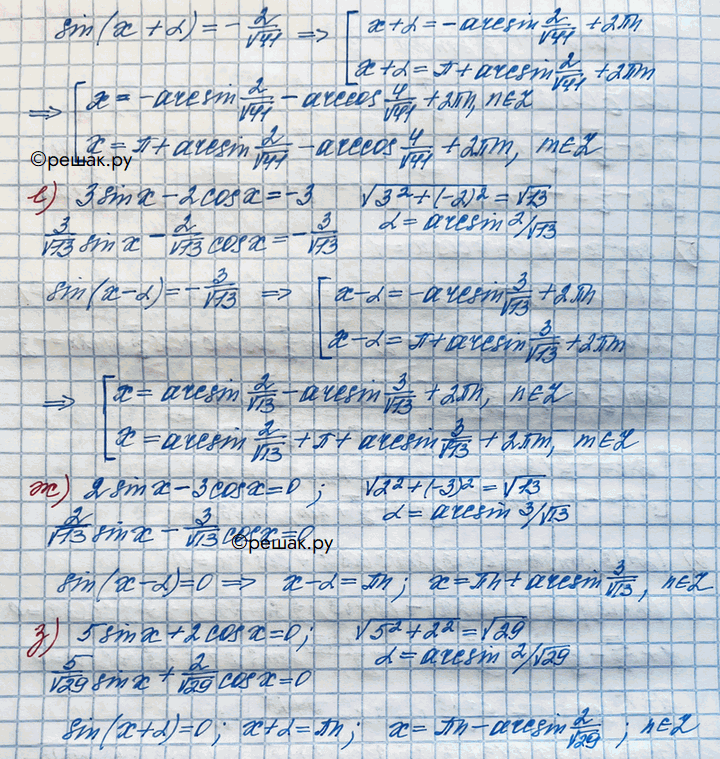 sin(x+α) = -2/√41 ⇒ [ x+α = -arcsin 2/√41 + 2πn
x+α = π + arcsin 2/√41 + 2πm
⇒ [ x = -arcsin 2/√41 - arccos 4/√41 + 2πn, n∈Z
x = π + arcsin 2/√41 - arccos 4/√41 + 2πm, m∈Z
©решак.ру
е) 3sinx - 2cosx = -3 √3²+(-2)² = √13
3/√13 sinx - 2/√13 cosx = -3/√13 α = arcsin 2/√13
sin(x-α) = -3/√13 ⇒ [ x-α = -arcsin 3/√13 + 2πn
x-α = π + arcsin 3/√13 + 2πm
⇒ [ x = arcsin 2/√13 - arcsin 3/√13 + 2πn, n∈Z
x = arcsin 2/√13 + π + arcsin 3/√13 + 2πm, m∈Z
ж) 2sinx - 3cosx = 0; √2²+(-3)² = √13
2/√13 sinx - 3/√13 cosx = 0 α = arcsin 3/√13
©решак.ру
sin(x-α) = 0 ⇒ x-α = πn; x = πn + arcsin 3/√13, n∈Z
з) 5sinx + 2cosx = 0; √5²+2² = √29
5/√29 sinx + 2/√29 cosx = 0 α = arcsin 2/√29
sin(x+α) = 0; x+α = πn; x = πn - arcsin 2/√29; n∈Z